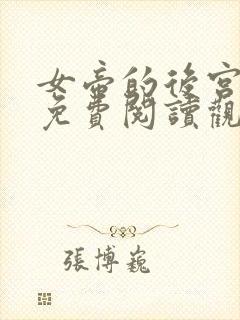 女帝的後宮
免費閱讀觀
張博巍